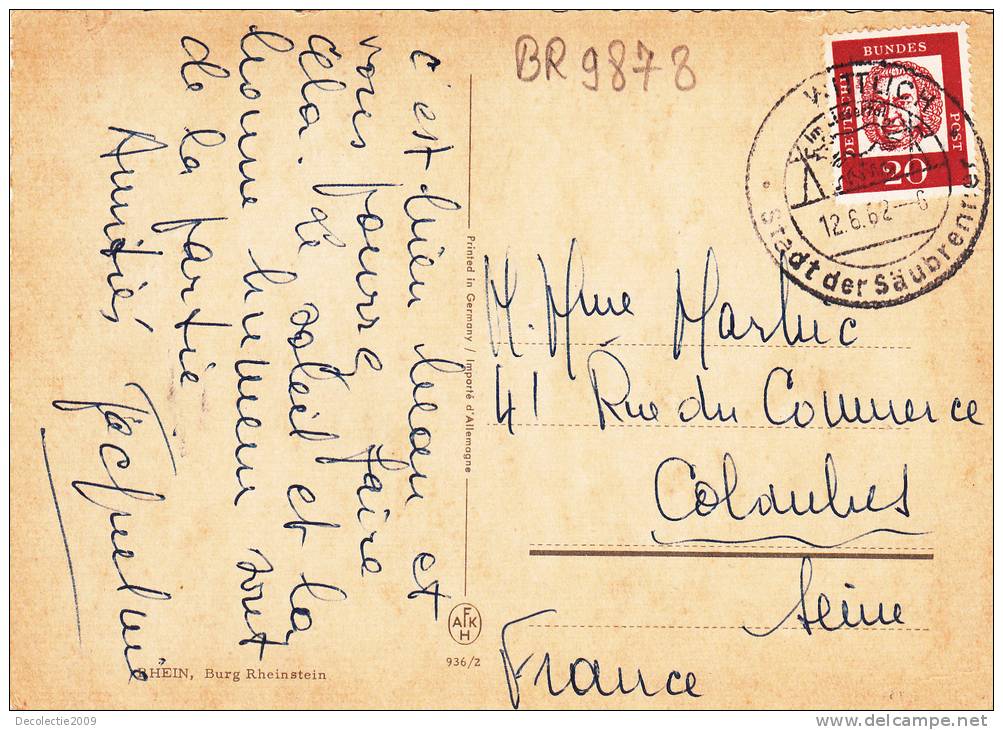 BR 9878
c'est bien beau et
vous pouvez faire
cela. Le soleil et la
bonne humeur sont
de la partie
Amitiés
Jacqueline
Printed in Germany / Importé d'Allemagne
AFKH
936/Z
RHEIN, Burg Rheinstein
DEUTSCHE
BUNDES
POST
20
WITTLICH
12.6.62–6
Stadt der Säubrenner
M. Mme Marluc
41 Rue du Commerce
Colombes
Seine
France
Decolectie2009
www.delcampe.net